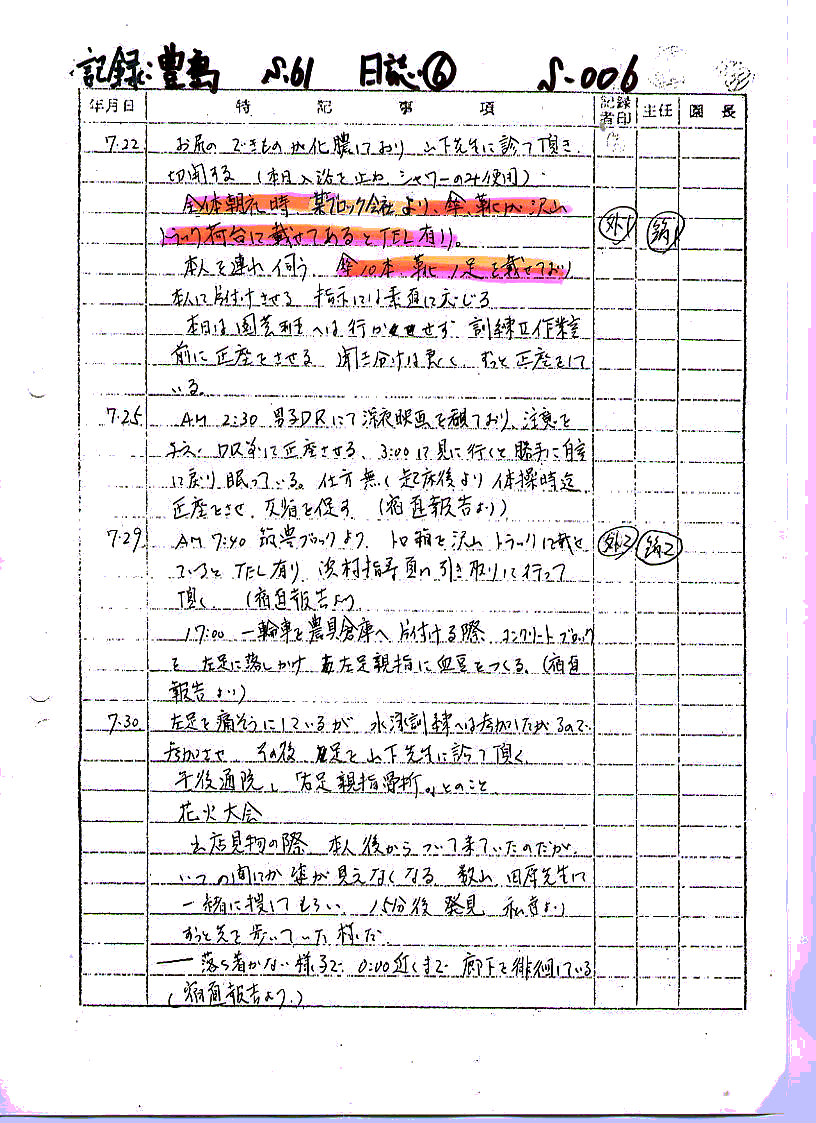 記録:豊島 S.61 日誌⑥ S-006
年月日 特記事項 記録者印 主任 園長
7.22 お尻のできものが化膿しており 山下先生に診て頂き
切開する (本日入浴を止め シャワーのみ使用)
全体朝礼時 某ブロック会社より、傘、靴が沢山
トラック荷台に載せてあるとTEL有り。
外1 銘1
本人を連れ伺う 傘10本 靴1足を載せており
本人に片付けさせる 指示には素直に応じる
本日は園芸班へは行かせず 訓練工作業室
前に正座をさせる 聞き分けは良く ずっと正座をして
いる。
7.25 AM 2:30 男子DRにて深夜映画を観ており、注意を
与え DR前に正座させる、3:00に見に行くと勝手に自室
に戻り 眠っている。仕方無く起床後より体操時迄
正座をさせ 反省を促す (宿直報告より)
7.29 AM 7:40 筑豊ブロックより トロ箱を沢山 トラックに載せ
外2 銘2
ているとTEL有り 指導員に引き取りに行って
頂く (宿直報告より
17:00 一輪車を農具倉庫へ片付ける際 コンクリートブロック
を 左足に落しかけ 左足親指に血豆をつくる。(宿直
報告より)
7.30 左足を痛そうにしているが 水泳訓練へは参加したがるので
参加させ その後 足を山下先生に診て頂く
午後通院し「右足親指骨折」とのこと
花火大会
出店見物の際 本人後からついて来ていたのだが、
いつの間にか姿が見えなくなる 先生に
一緒に捜してもらい 15分後発見 私達より
ずっと先を歩いていた様だ
落ち着かない様子で 0:00近くまで 廊下を徘徊している
(宿直報告より)